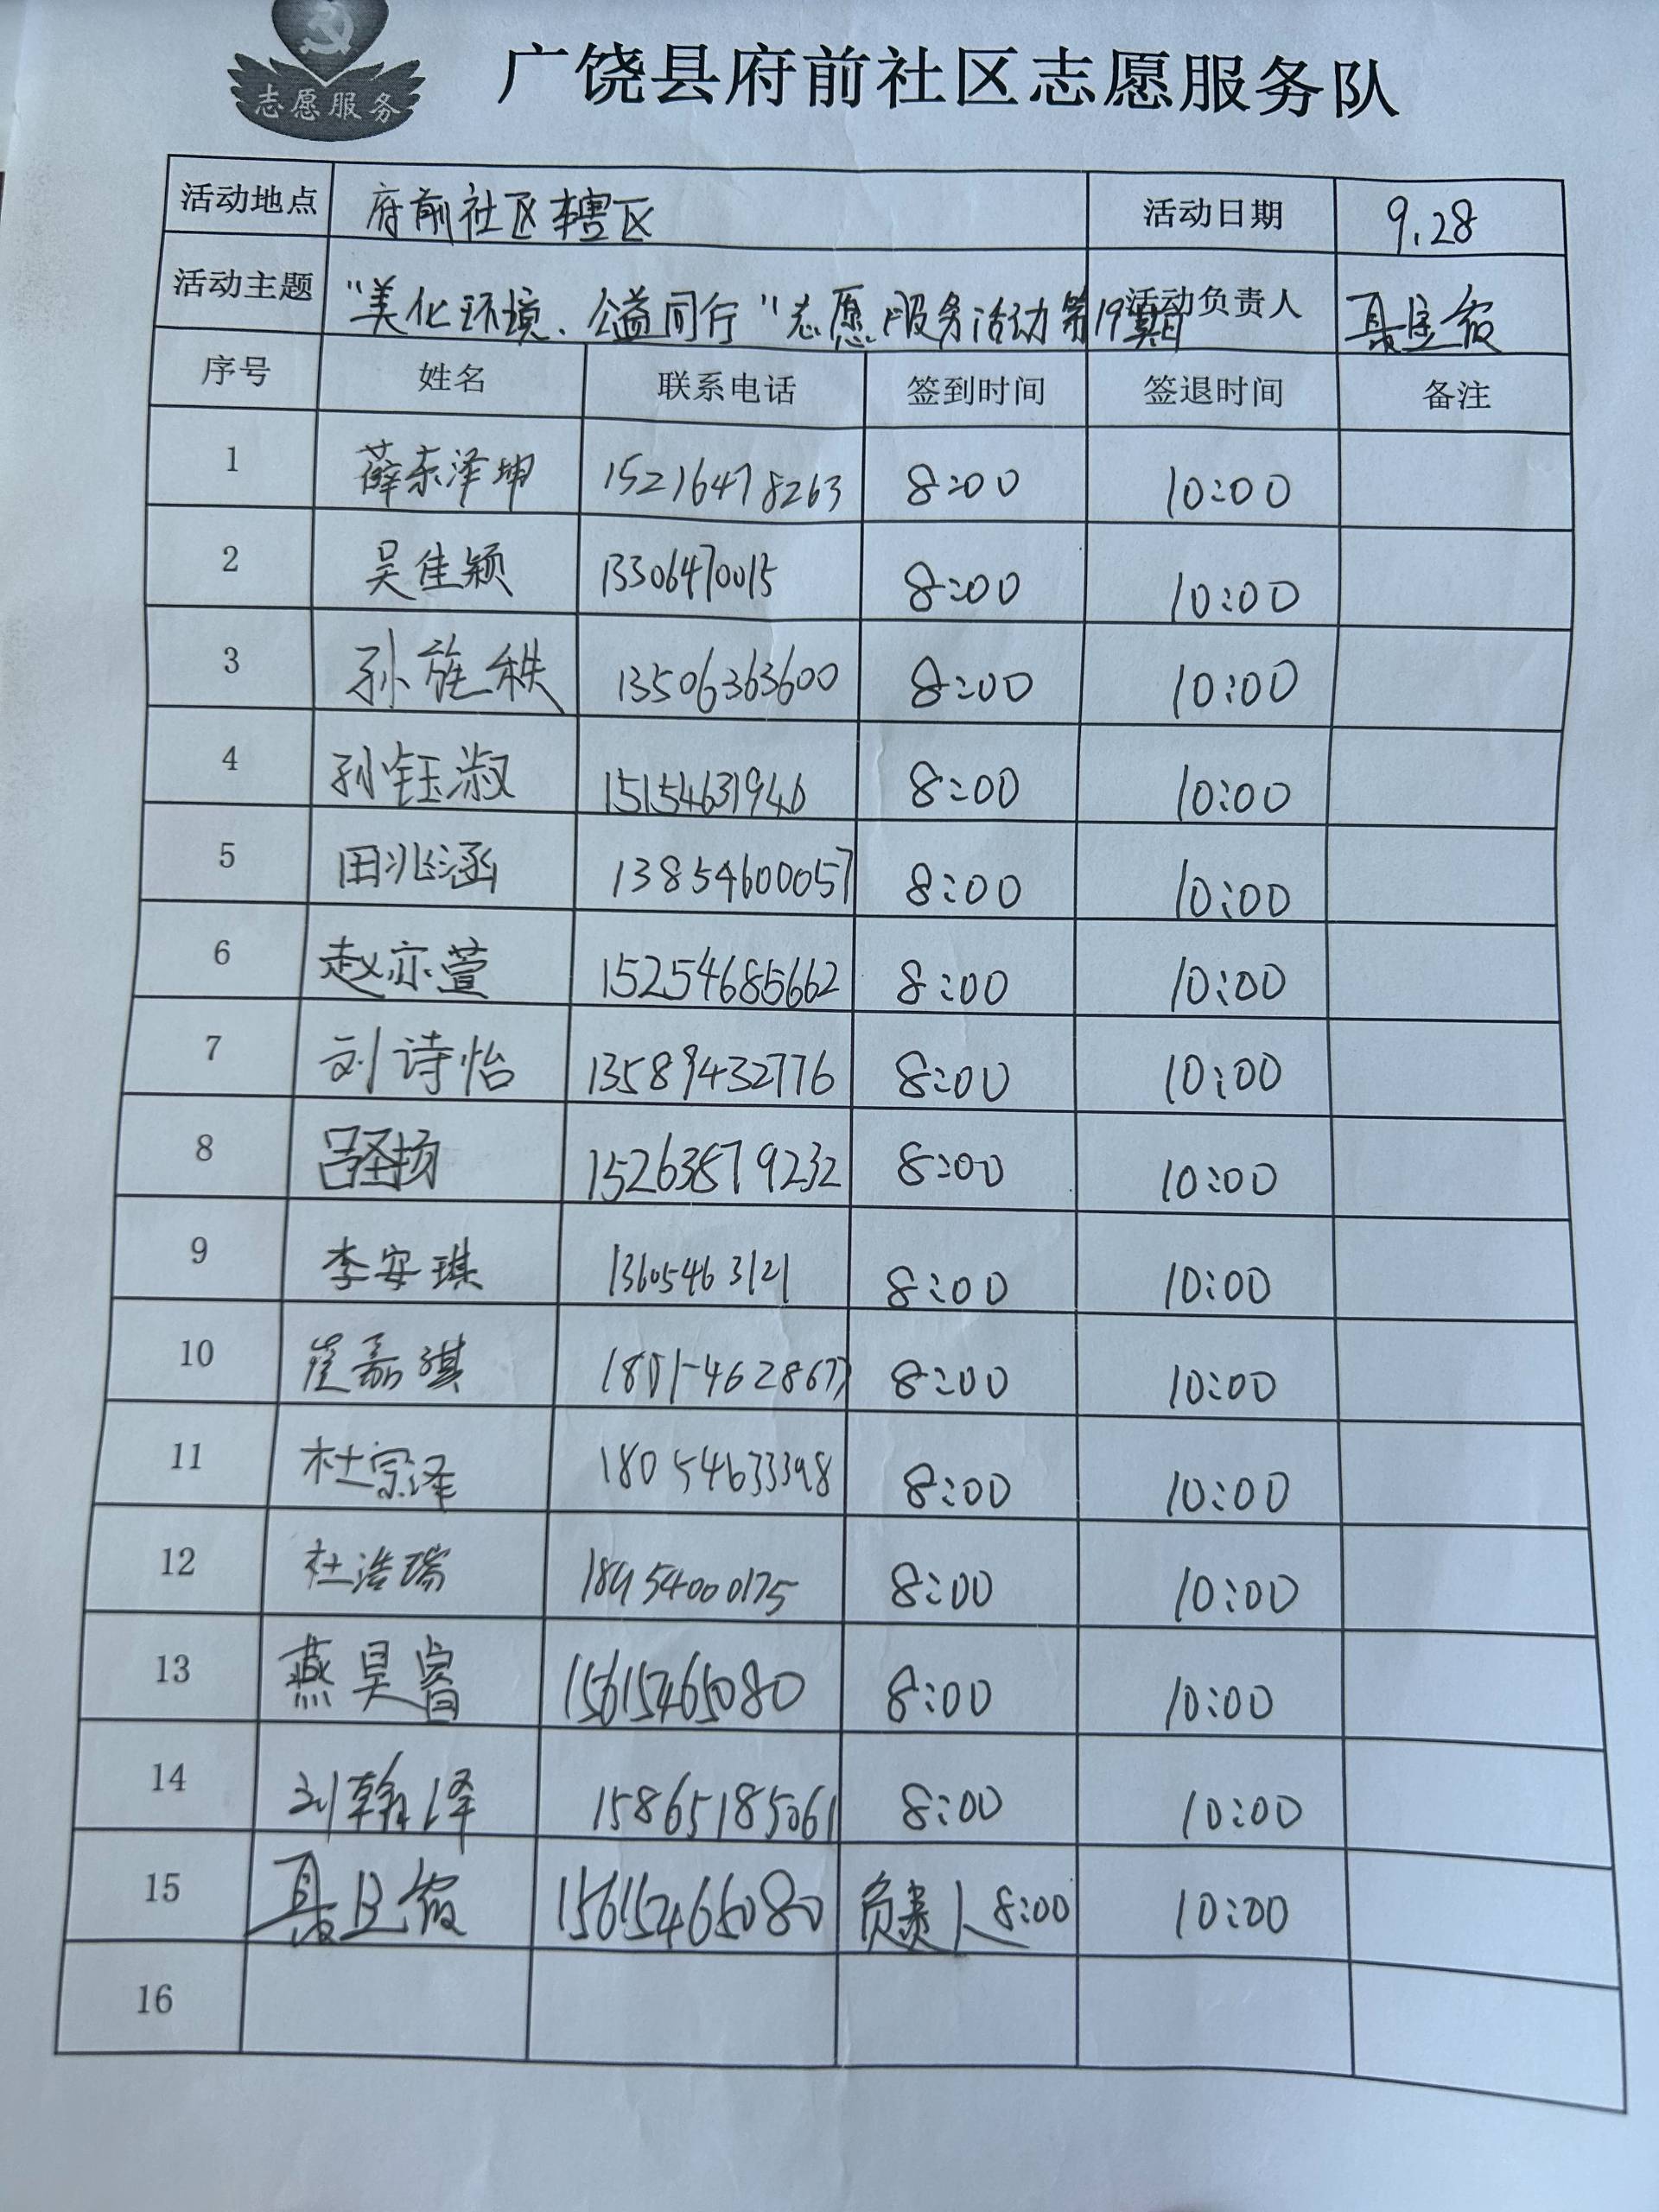 志愿服务
广饶县府前社区志愿服务队
活动地点 府前社区辖区 活动日期 9.28
活动主题 "美化环境、公益同行"志愿服务活动第19期 活动负责人
序号 姓名 联系电话 签到时间 签退时间 备注
1 薛东泽坤 15216478263 8:00 10:00
2 吴佳颖 13306470015 8:00 10:00
3 孙旌秩 13506363600 8:00 10:00
4 孙钰淑 15154631940 8:00 10:00
5 田兆涵 13854600057 8:00 10:00
6 赵亦萱 15254685662 8:00 10:00
7 刘诗怡 13589432776 8:00 10:00
8 吕圣扬 15263879232 8:00 10:00
9 李安琪 13605463121 8:00 10:00
10 崔嘉琪 8:00 10:00
11 杜宗泽 18054633398 8:00 10:00
12 杜浩瑞 18954000175 8:00 10:00
13 燕昊睿 15615465080 8:00 10:00
14 刘翰泽 15865185061 8:00 10:00
15 15615465080 负责人 8:00 10:00
16